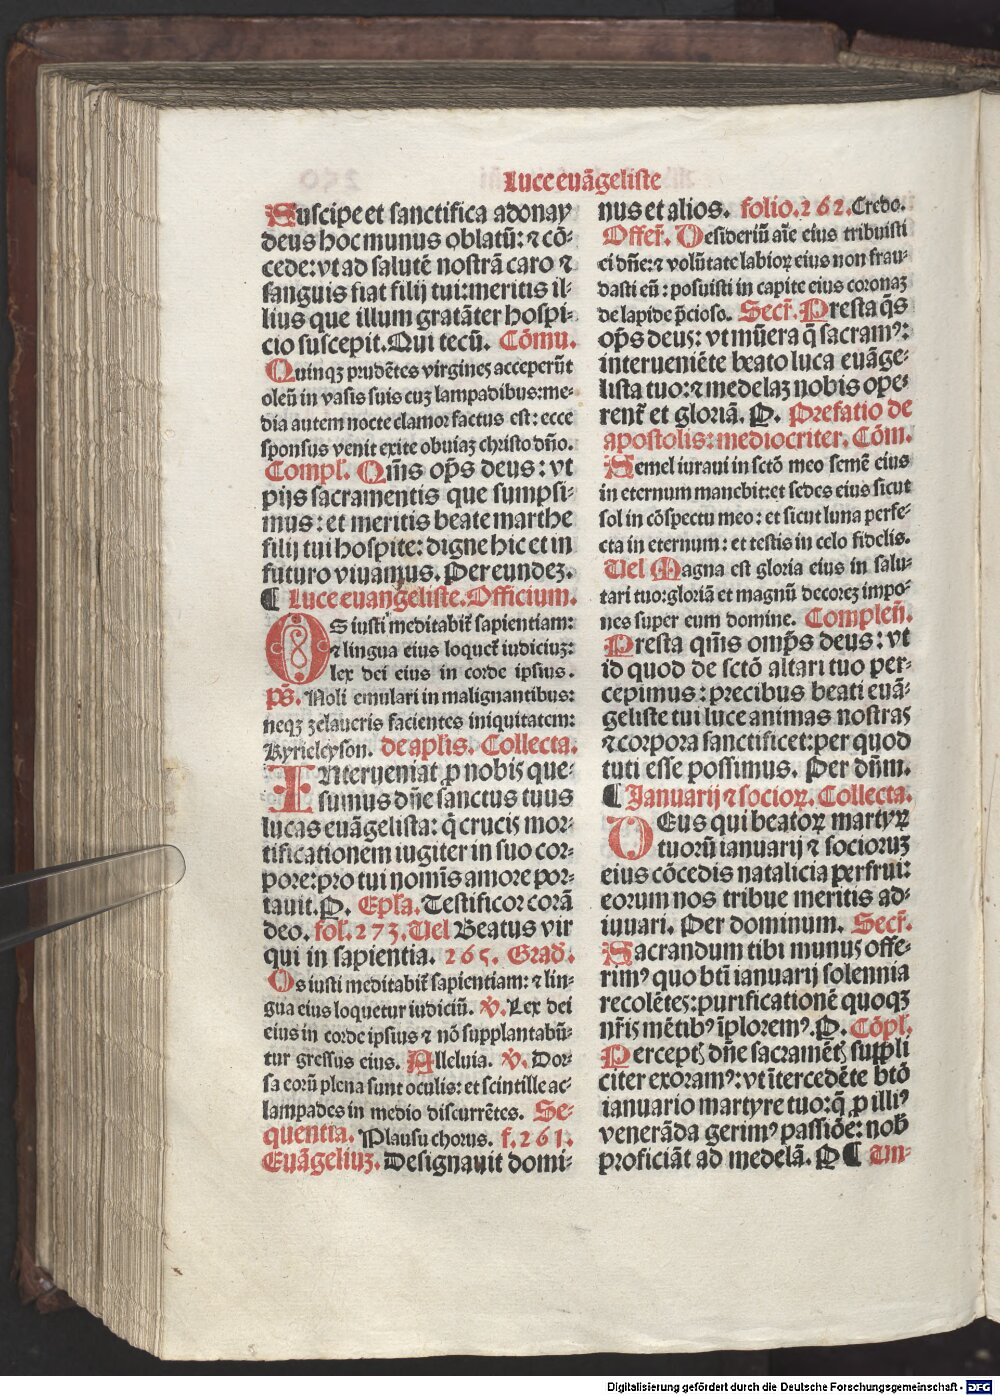 Luce euãgeliste
Suscipe et sanctifica adonay
deus hoc munus oblatũ: ⁊ cõ-
cede: vt ad salutẽ nostrã caro ⁊
sanguis fiat filij tui: meritis il-
lius que illum gratãter hospi-
cio suscepit. Qui tecũ. Cõmu.
Quinqꝫ prudẽtes virgines acceperũt
oleũ in vasis suis cuꝫ lampadibus: me-
dia autem nocte clamor factus est: ecce
sponsus venit exite obuiaꝫ christo dño.
Compl̃. Qm̃s op̃s deus: vt
pijs sacramentis que sumpsi-
mus: et meritis beate marthe
filij tui hospite: digne hic et in
futuro viuamus. Per eundeꝫ.
¶ Luce euangeliste. Officium.
OS iusti meditabit̃ sapientiam:
⁊ lingua eius loquet̃ iudiciuꝫ:
lex dei eius in corde ipsius.
ps̃. Noli emulari in malignantibus:
neqꝫ zelaueris facientes iniquitatem:
Kyrieleyson. de apl̃is. Collecta.
INterueniat ꝓ nobis que-
sumus dñe sanctus tuus
lucas euãgelista: q̃ crucis mor-
tificationem iugiter in suo cor-
pore: pro tui nomĩs amore por-
tauit. P. Epl̃a. Testificor corã
deo. fol. 273. Uel Beatus vir
qui in sapientia. 265. Grad̃.
Os iusti meditabit̃ sapientiam: ⁊ lin-
gua eius loquetur iudiciũ. ℣. Lex dei
eius in corde ipsius ⁊ nõ supplantabũ-
tur gressus eius. Alleluia. ℣. Dor-
sa eorũ plena sunt oculis: et scintille ac
lampades in medio discurrẽtes. Se-
quentia. Plausu chorus. f. 261.
Euãgeliuꝫ. Designauit domi-
nus et alios. folio. 262. Credo.
Offer̃. Desideriũ aĩe eius tribuisti
ei dñe: ⁊ volũtate labioꝝ eius non frau-
dasti eũ: posuisti in capite eius coronaꝫ
de lapide p̃cioso. Secr̃. Presta q̃s
op̃s deus: vt mũera q̃ sacramꝰ:
interueniẽte beato luca euãge-
lista tuo: ⁊ medelaꝫ nobis ope-
rent̃ et gloriã. P. Prefatio de
apostolis: mediocriter. Cõm.
Semel iuraui in sctõ meo semẽ eius
in eternum manebit: et sedes eius sicut
sol in cõspectu meo: et sicut luna perfe-
cta in eternum: et testis in celo fidelis.
Uel Magna est gloria eius in salu-
tari tuo: gloriã et magnũ decoreꝫ impo-
nes super eum domine. Compleñ.
Presta qm̃s omp̃s deus: vt
id quod de sctõ altari tuo per-
cepimus: precibus beati euã-
geliste tui luce animas nostras
⁊ corpora sanctificet: per quod
tuti esse possimus. Per dñm.
¶ Januarij ⁊ socioꝝ. Collecta.
DEus qui beatoꝝ martyꝝ
tuorũ ianuarij ⁊ socioruꝫ
eius cõcedis natalicia perfrui:
eorum nos tribue meritis ad-
iuuari. Per dominum. Secr̃.
Sacrandum tibi munus offe-
rimꝰ quo bti ianuarij solennia
recolẽtes: purificationẽ quoqꝫ
nr̃is mẽtibꝰ ĩploremꝰ. P. Cõpl̃.
Perceptꝭ dñe sacramẽtꝭ suppli
citer exoramꝰ: vt ĩtercedẽte btõ
ianuario martyre tuo: q̃ ꝓ illiꝰ
venerãda gerimꝰ passiõe: nob̃
proficiãt ad medelã. P ¶ Un-
Digitalisierung gefördert durch die Deutsche Forschungsgemeinschaft - DFG